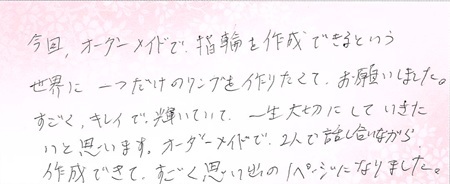 今回、オーダーメイドで、指輪を作成できるという
世界に一つだけのリングを作りたくて、お願いしました。
すごく、キレイで、輝いていて、一生大切にしていきた
いと思います。オーダーメイドで、2人で話し合いながら
作成できて、すごく思い出の1ページになりました。